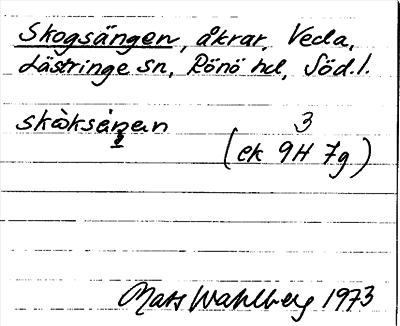 Skogsängen, åkrar, Veda,
Lästringe sn, Rönö hd, Söd.l.
skògsä̀ŋan 3
(ek 9H 7g)
Mats Wahlberg 1973